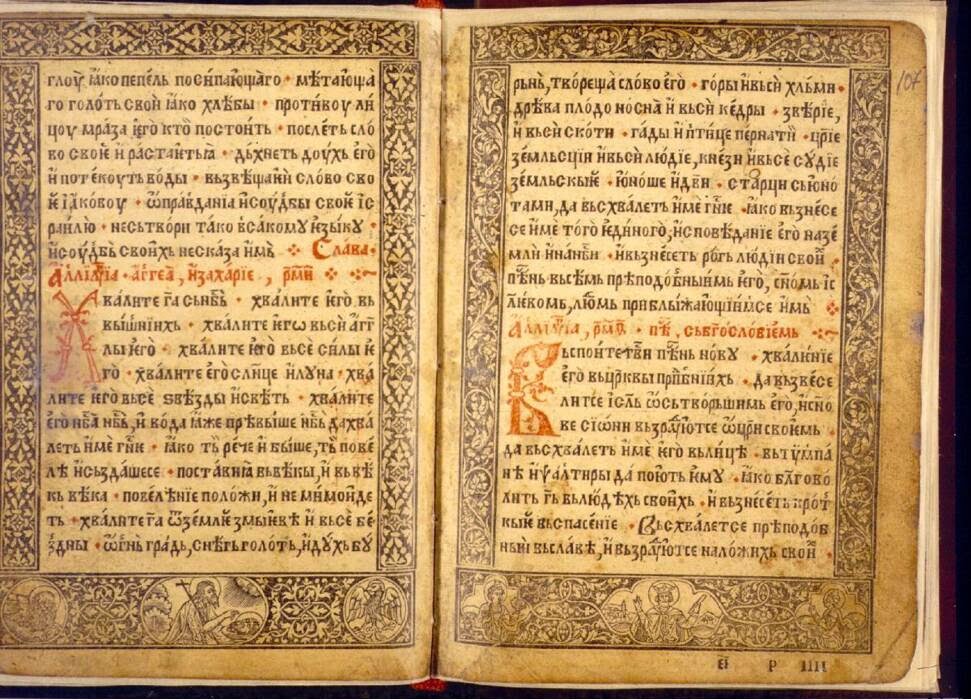 глоу ꙗко пепель посипающаго · мѣтающа
го голоть свои ꙗко хлѣбы · противоу ли
цоу мраза ѥго кто постоить · послеть сло
во своѥ и растаить ꙗ · дьхнеть доухь его
и потекоуть воды · вызвѣщаѥи слово сво
ѥ іаковоу · ѡправданіа и соудбы своѥ іс
раилю · несьтвори тако всакому ѥзыку ·
и соудбь своихь несказа имь · Слава ·
Аллилꙋіа · аггеа, и захаріе, рми
Хвалите га сь нбь · хвалите ѥго вь
вышніихь · хвалите ѥгѡ вьси агг
лы ѥго · хвалите ѥго вьсе силы ѥ
го · хвалите его слнце и луна · хва
лите ѥго вьсе ѕвѣзды и свѣть · хвалите
его нба нбь, и вода ꙗже прѣвыше нбь да хва
леть име гнѥ · ꙗко ть рече и быше, ть пове
лѣ и создашесе · постави ꙗ вьвѣкы, и вьвѣ
кь вѣка · повелѣніе положи, и не мимоиде
ть · хвалите га ѿ землѥ змыѥвѣ и вьсе бе
здны · ѡгнь градь, снѣгь голоть, и духь бу
107
рьнь, творещаа слово его · горы и вьси хльми ·
дрѣва плодоноснаа и вьси кедри · звѣріе,
и вьси скоти · гады и птице пернати · цріе
земльсціи и вьси людіе, кнези и вьсе судіе
земльскыѥ · юноше и двы · старци сь юно
тами, да вьсхвалеть име гнѥ · ꙗко вьзнесе
се име того ѥдиного, исповѣданіе его на зе
мли и на нби · и вьзнесеть рогь людіи своѥ
пѣнь вьсѣмь прѣподобныимь ѥго, сномь іс
лѥвомь, людемь приближающіимсе ѥмь
Аллилꙋіа, рмѳ · пѣ, сь бгословіемь
Вьспоите гви пѣнь нову · хваленіе
его вь цркви прпбніихь · да вьзвесе
литсе ісль ѡ сьтворьшимь его, и сно
ве сіѡни вьзрадуютсе ѡ цри своемь
да вьсхвалеть име ѥго вь лицѣ · вь тѵмпа
нѣ и ѱалтиры да поють ѥму · ꙗко благово
лить гь вь людѣхь своихь · и вьзнесеть крот
кыѥ вь спасеніе · Вьсхвалетсе прѣподоб
ныи вь славѣ, и вьзрадуютсе на ложихь своѥ